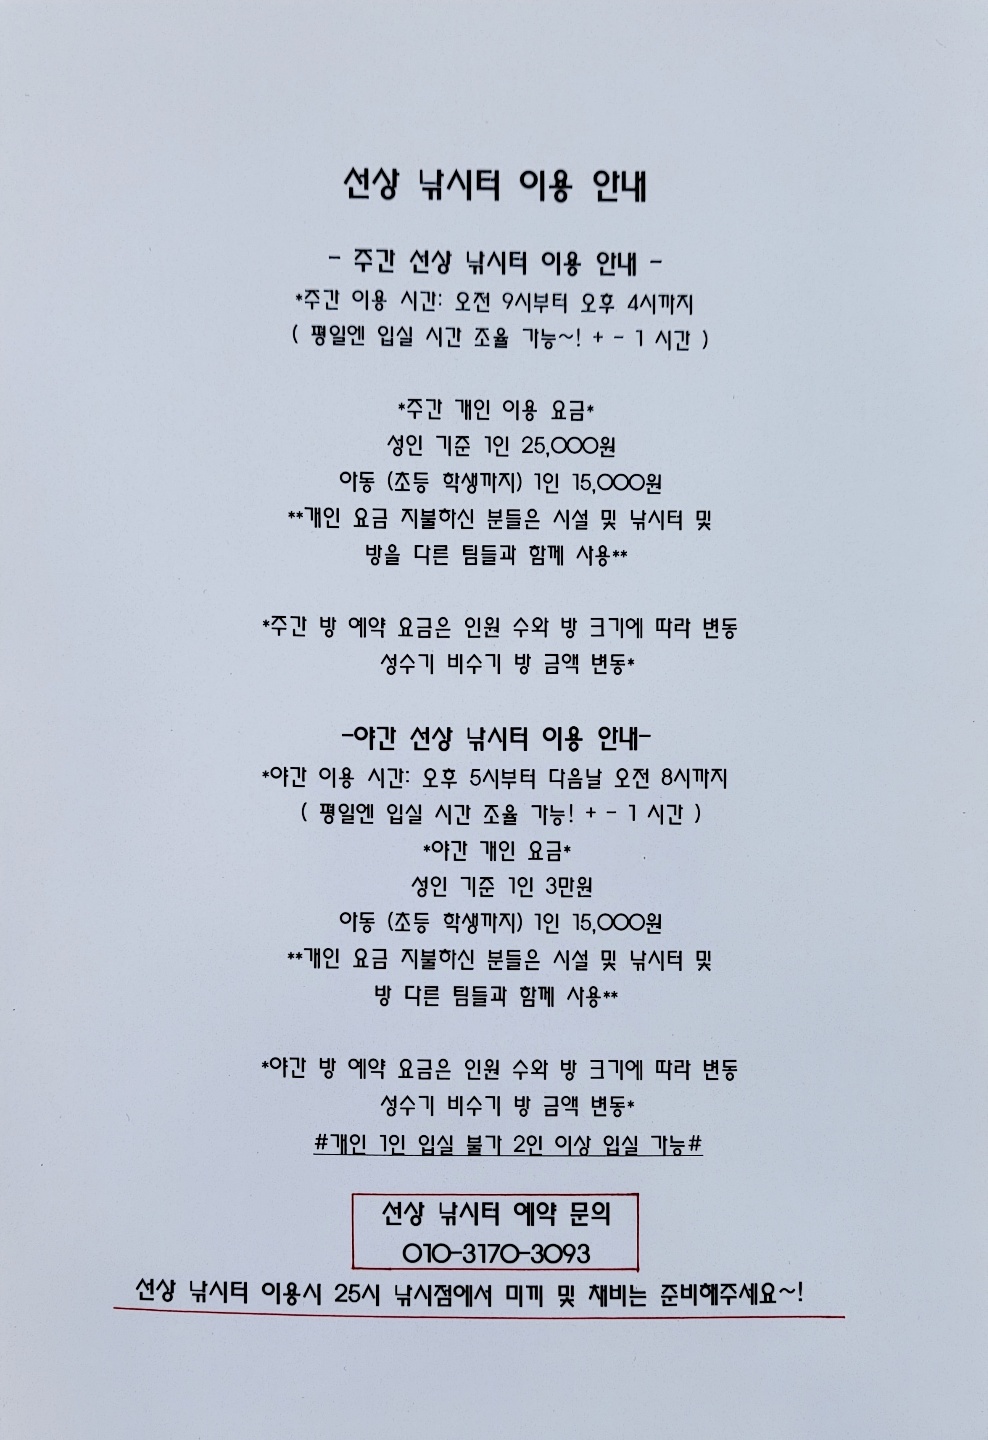 선상 낚시터 이용 안내
- 주간 선상 낚시터 이용 안내 -
*주간 이용 시간: 오전 9시부터 오후 4시까지
( 평일엔 입실 시간 조율 가능~! + - 1 시간 )
*주간 개인 이용 요금*
성인 기준 1인 25,000원
아동 (초등 학생까지) 1인 15,000원
**개인 요금 지불하신 분들은 시설 및 낚시터 및
방을 다른 팀들과 함께 사용**
*주간 방 예약 요금은 인원 수와 방 크기에 따라 변동
성수기 비수기 방 금액 변동*
-야간 선상 낚시터 이용 안내-
*야간 이용 시간: 오후 5시부터 다음날 오전 8시까지
( 평일엔 입실 시간 조율 가능! + - 1 시간 )
*야간 개인 요금*
성인 기준 1인 3만원
아동 (초등 학생까지) 1인 15,000원
**개인 요금 지불하신 분들은 시설 및 낚시터 및
방 다른 팀들과 함께 사용**
*야간 방 예약 요금은 인원 수와 방 크기에 따라 변동
성수기 비수기 방 금액 변동*
#개인 1인 입실 불가 2인 이상 입실 가능#
선상 낚시터 예약 문의
010-3170-3093
선상 낚시터 이용시 25시 낚시점에서 미끼 및 채비는 준비해주세요~!